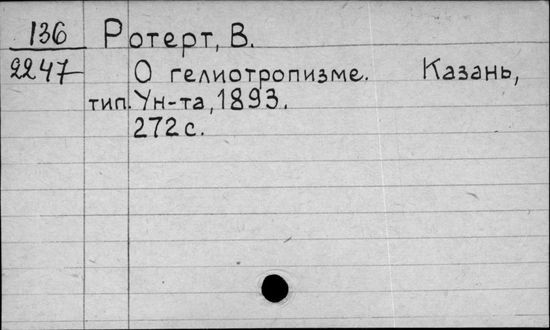 136 Ротерт, В.
2247 О гелиотропизме. Казань,
тип. Ун-та, 1893.
272 с.